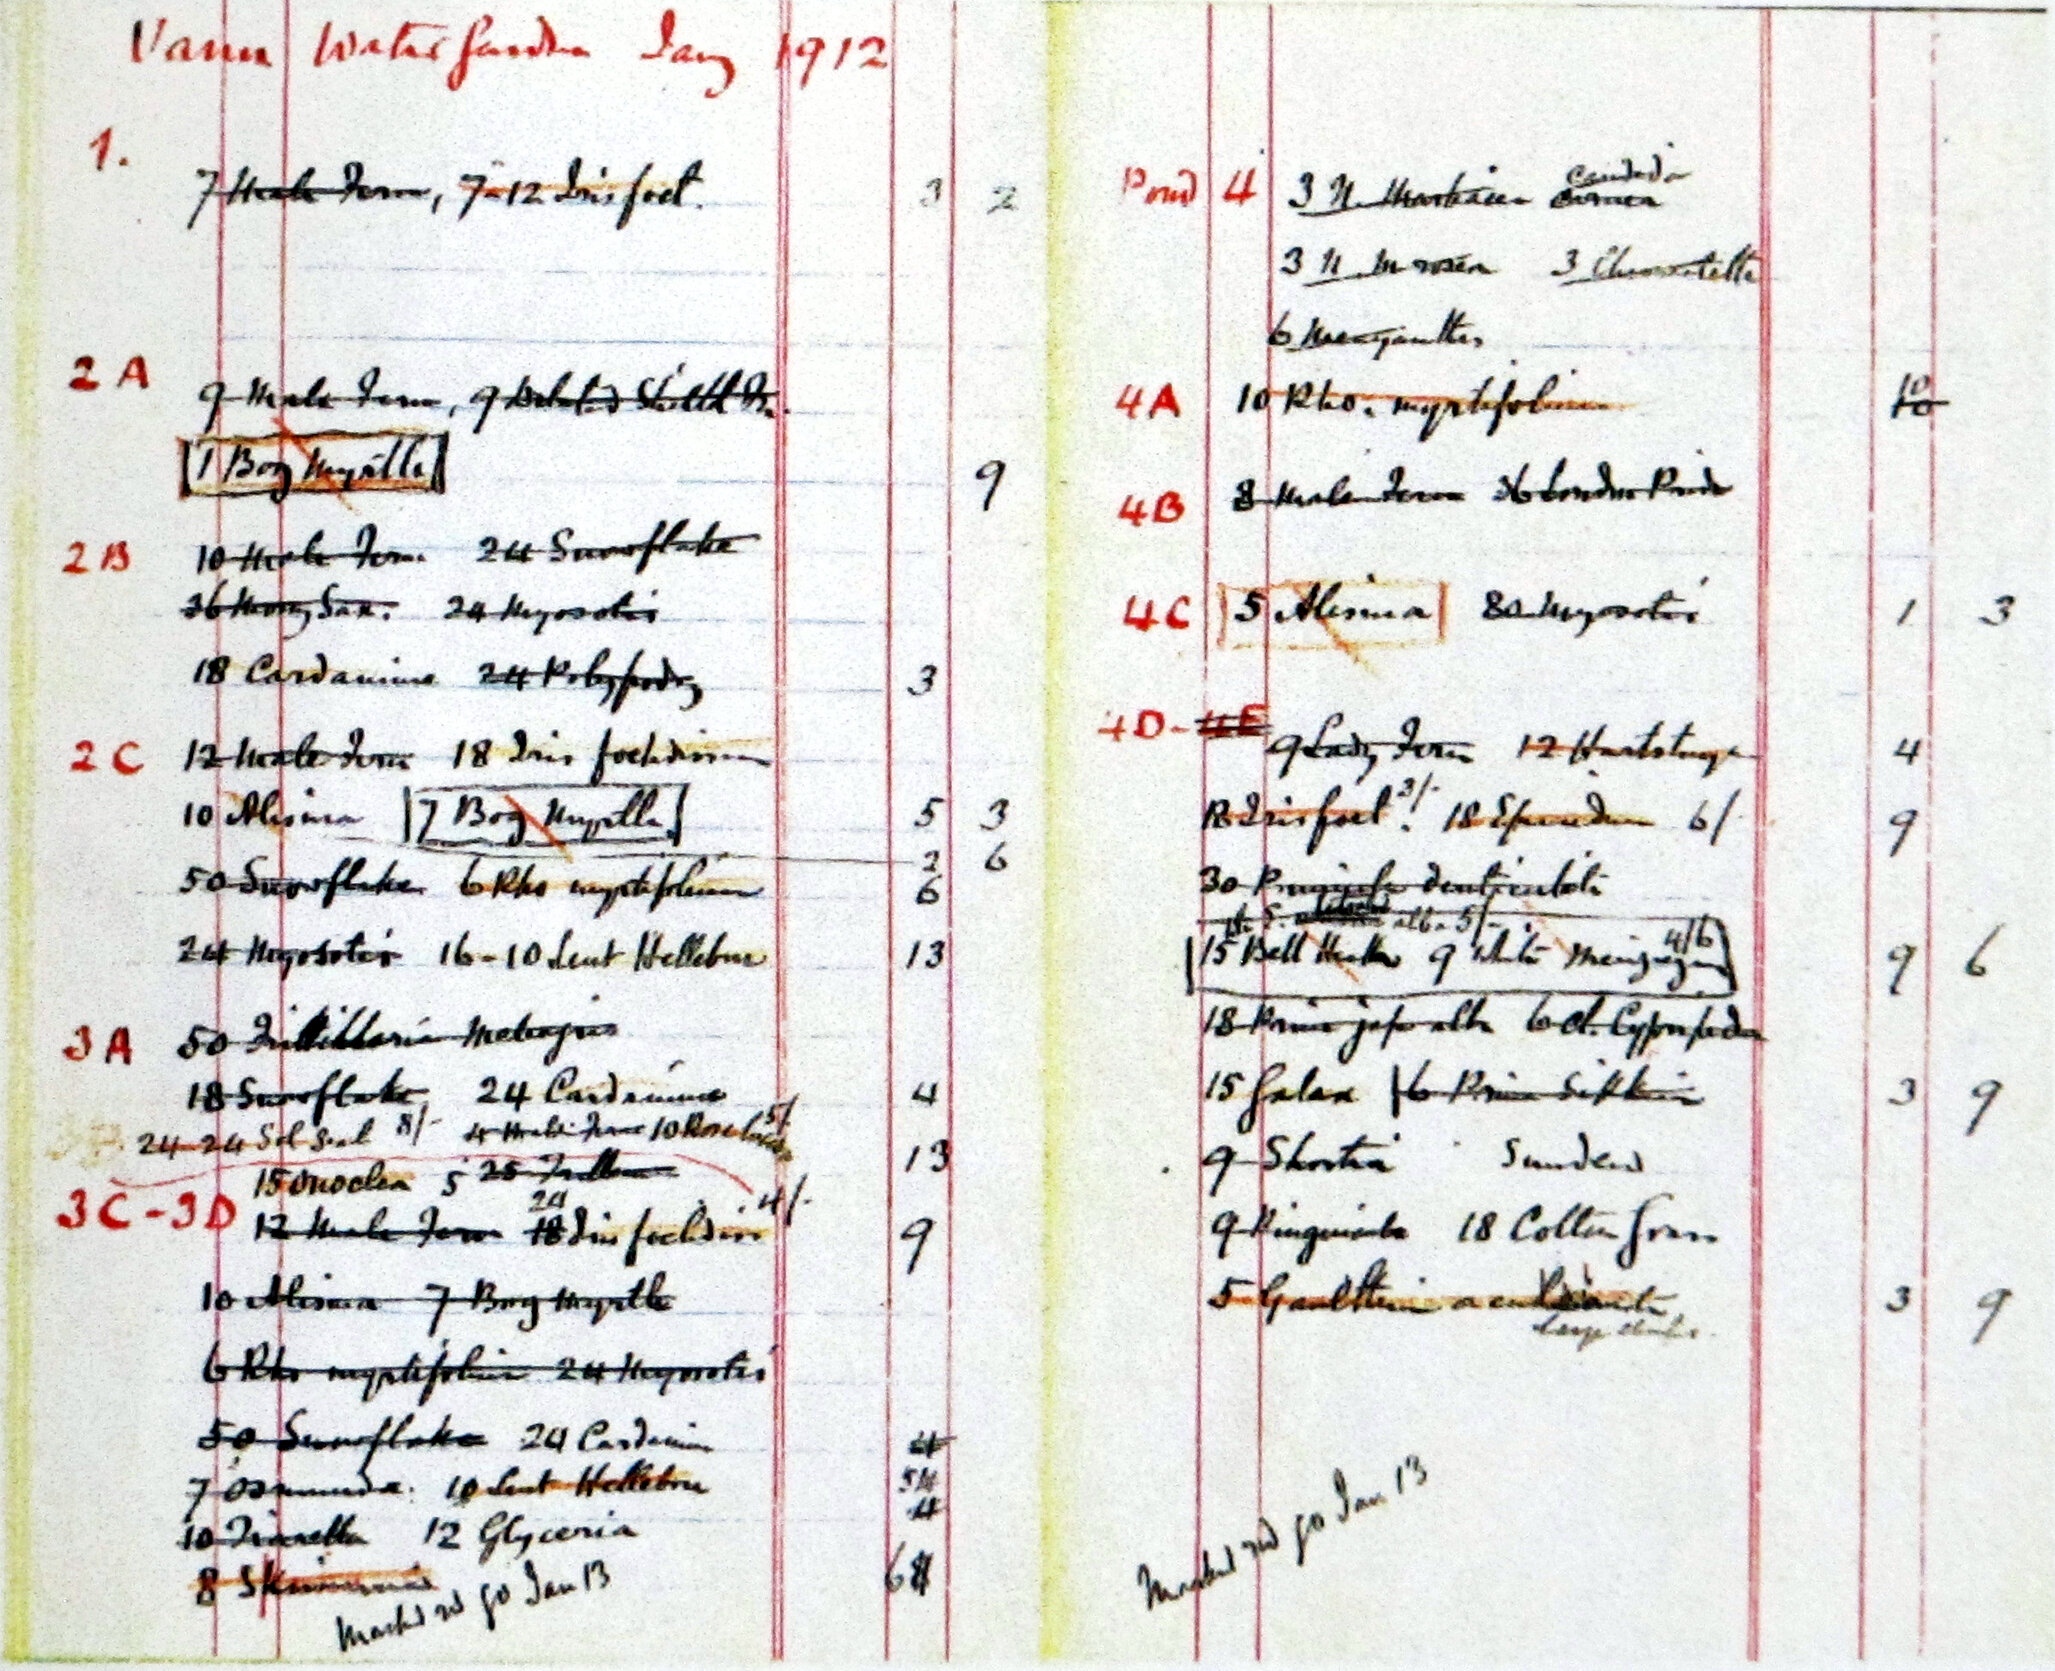 Vann Water Garden Jany 1912
1.
7 Male Fern, 7-12 Iris foet. 3 2
2A
9 Male Fern, 9 Dilated Shield Fn.
1 Bog Myrtle 9
2B 10 Male Fern 24 Snowflake
36 Mossy Sax. 24 Myosotis
18 Cardamine 24 Polypody 3
2C 12 Male Fern 18 Iris foetidissima
10 Alisma 7 Bog Myrtle 5 3
2 6
50 Snowflake 6 Rho myrtifolium 6
24 Myosotis 16-10 Lent Hellebore 13
3A 50 Fritillaria Meleagris
18 Snowflake 24 Cardamine 4
24 24 Sol Seal 8/- 4 Male Fern 10 Rose 5/-
15 Onoclea 5 25 13
3C-3D 12 Male Fern 18 24 Iris foetidiss 4/- 9
10 Alisma 7 Bog Myrtle
6 Rho myrtifolium 24 Myosotis
50 Snowflake 24 Cardamine 4
7 Osmunda. 10 Lent Hellebore
10 Tiarella 12 Glyceria 4
8 Skimmia
Marked red go Jan 13
Pond 4 3 N. Marliacea carnea candida
3 N. M rosea 3 Chromatella
6 Menyanthes
4A 10 Rho. myrtifolium 10
4B 8 Male Fern 36 London Pride
4C 5 Alisma 80 Myosotis 1 3
4D-4E
9 Lady Fern 12 Hartstongue 4
12 Iris foet. 3/- 18 Epimedium 6/- 9
30 Primula denticulata
alba 5/-
15 Bell Heather 9 White Menziesia 4/6 9 6
18 Prim jap alba 6 Cypripedium
15 Galax 6 Prim Sikkim 3 9
9 Shortia Sundew
9 Pinguicula 18 Cotton Grass
5 Gaultheria 3 9
large
Marked red go Jan 13